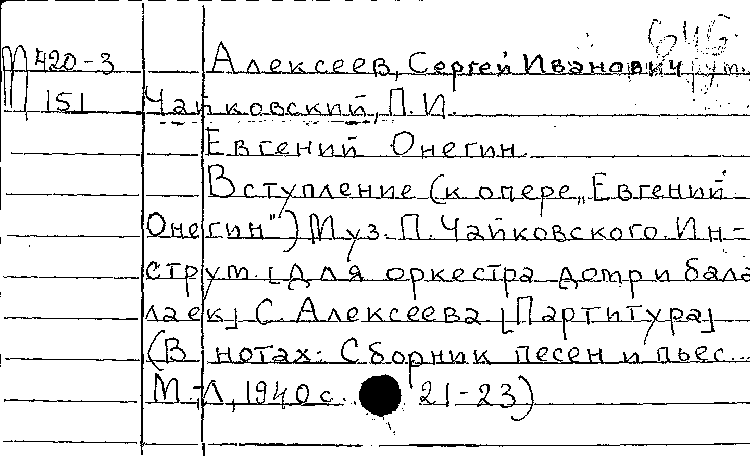 646.
М 420-3 Алексеев, Сергей Иванович
151 Чайковский, П.И.
Евгений Онегин.
Вступление (к опере „Евгений
Онегин") Муз. П. Чайковского. Ин-
струм. [для оркестра домр и бала
лаек] С. Алексеева [Партитура]
(В нотах: Сборник песен и пьес...
М.-Л, 1940 с. 21-23)